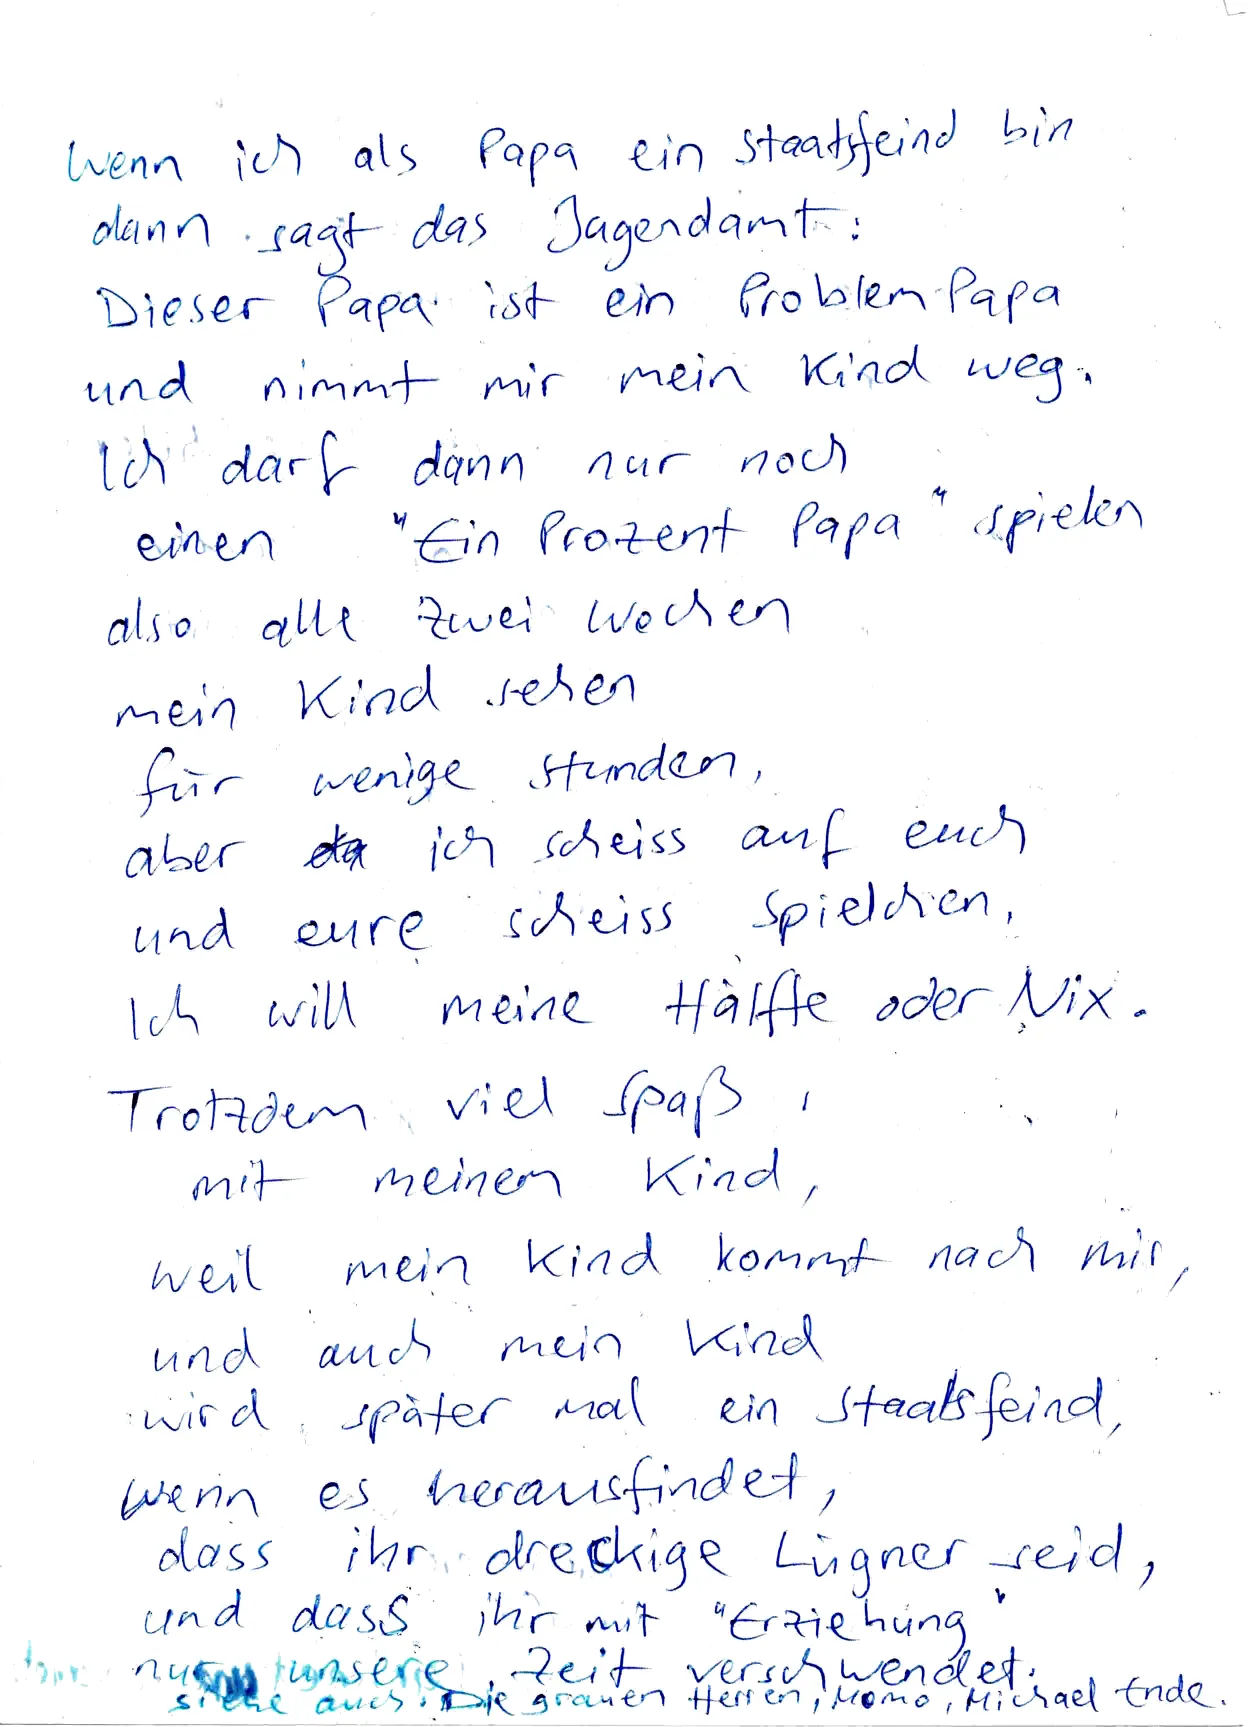 Wenn ich als Papa ein Staatsfeind bin
dann sagt das Jugendamt:
Dieser Papa ist ein Problem-Papa
und nimmt mir mein Kind weg.
Ich darf dann nur noch
einen "Ein Prozent Papa" spielen
also alle zwei Wochen
mein Kind sehen
für wenige Stunden,
aber ich scheiss auf euch
und eure scheiss Spielchen,
Ich will meine Hälfte oder Nix.
Trotzdem viel Spaß,
mit meinem Kind,
weil mein Kind kommt nach mir,
und auch mein Kind
wird später mal ein Staatsfeind,
wenn es herausfindet,
dass ihr dreckige Lügner seid,
und dass ihr mit "Erziehung"
nur unsere Zeit verschwendet.
siehe auch: Die grauen Herren, Momo, Michael Ende.